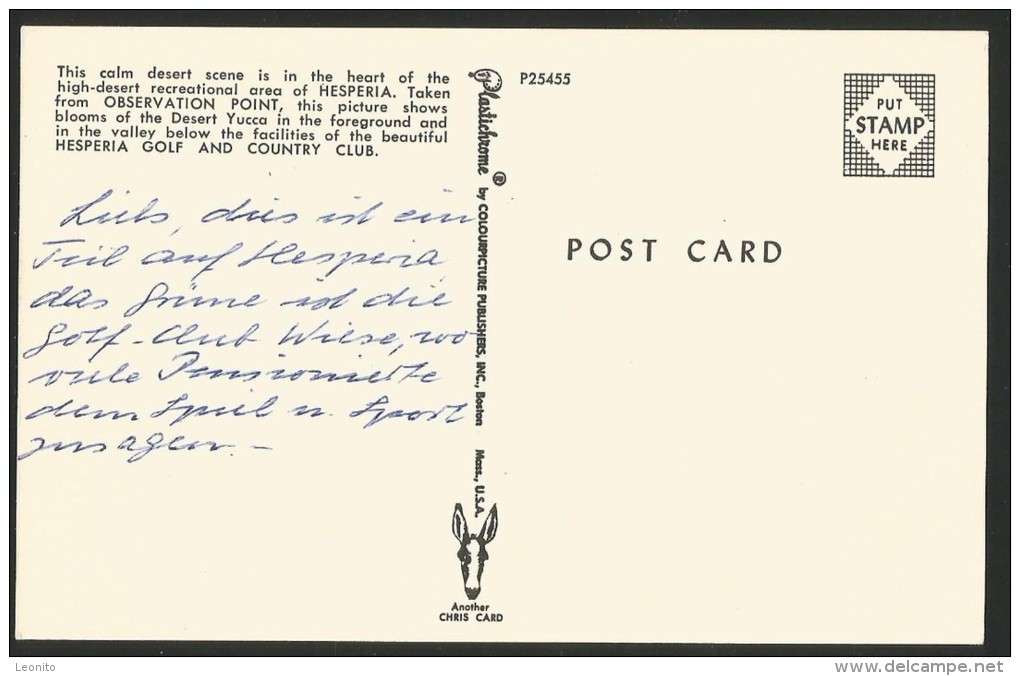 This calm desert scene is in the heart of the
high-desert recreational area of HESPERIA. Taken
from OBSERVATION POINT, this picture shows
blooms of the Desert Yucca in the foreground and
in the valley below the facilities of the beautiful
HESPERIA GOLF AND COUNTRY CLUB.
dies ist ein
Teil auf Hesperia,
das grüne ist die
Golf-Club Wiese, wo
viele Pensionierte
dem Spiel u. Sport
zusagen. –
Plastichrome ® by COLOURPICTURE PUBLISHERS, INC., Boston Mass., U.S.A.
Another
CHRIS CARD
P25455
PUT
STAMP
HERE
POST CARD
Leonito
www.delcampe.net